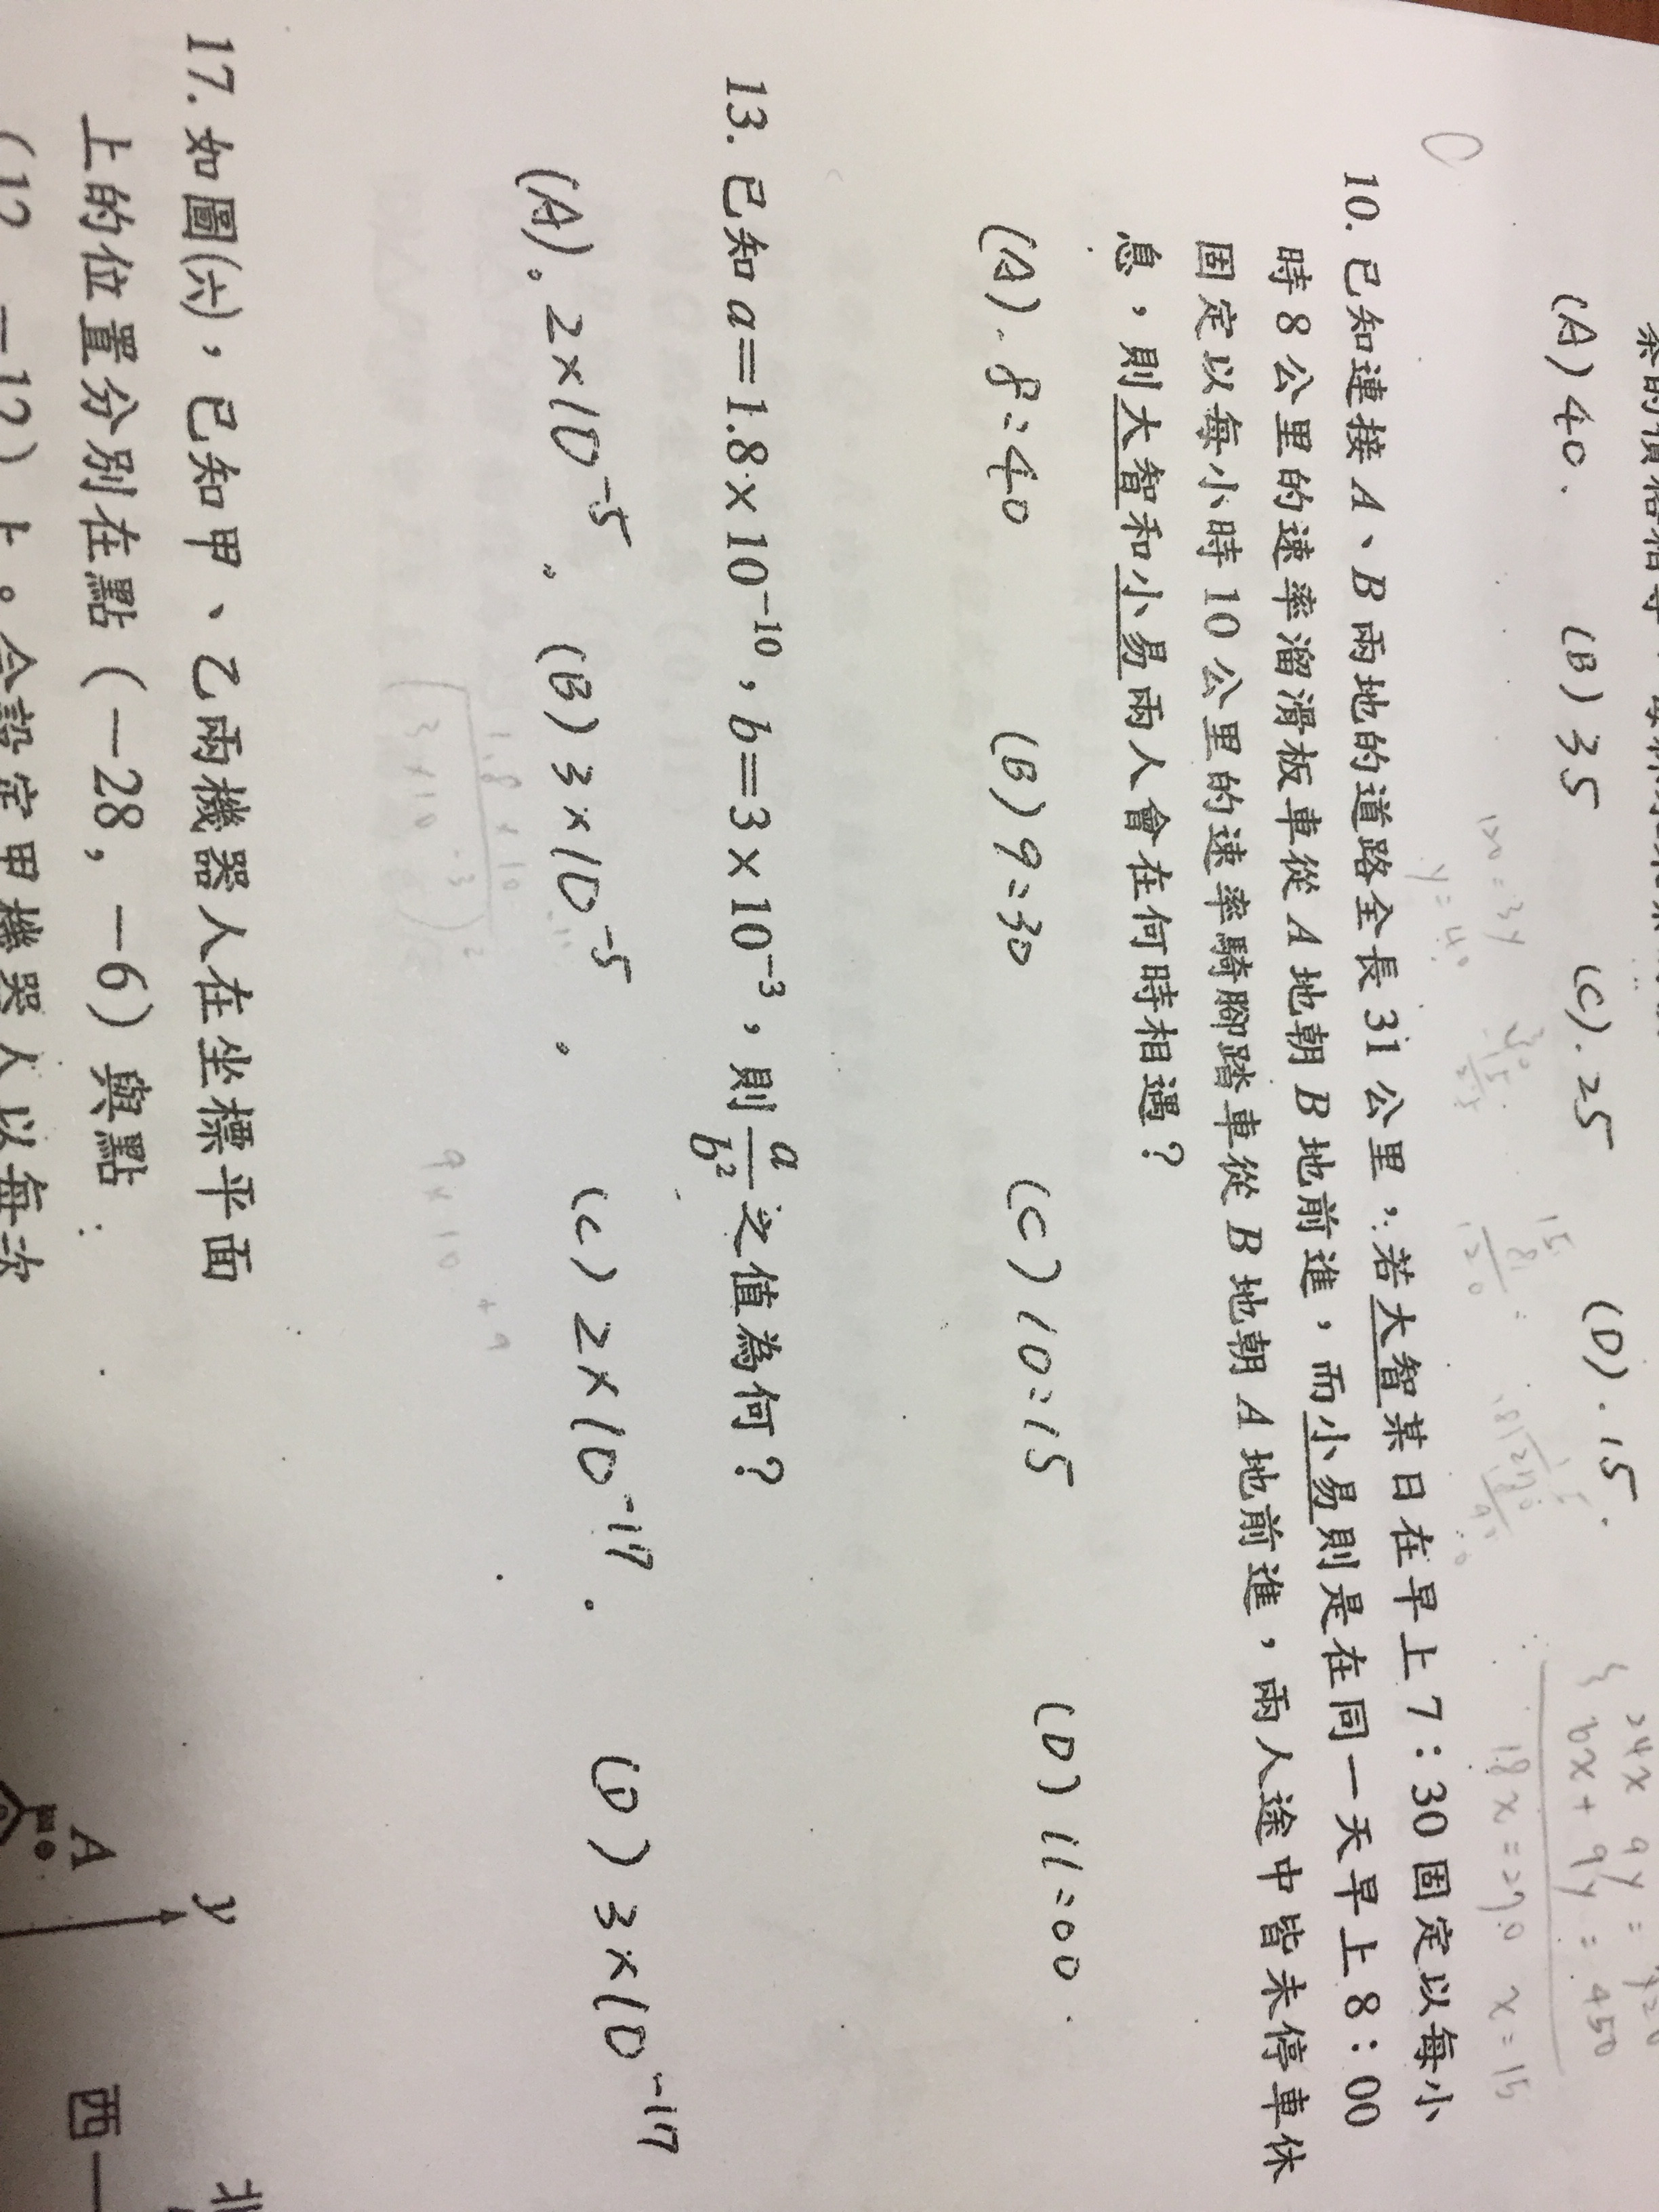 (A) 40. (B) 35 (C). 25 (D). 15.
10. 已知連接 A、B 兩地的道路全長 31 公里，若大智某日在早上 7：30 固定以每小
時 8 公里的速率溜滑板車從 A 地朝 B 地前進，而小易則是在同一天早上 8：00
固定以每小時 10 公里的速率騎腳踏車從 B 地朝 A 地前進，兩人途中皆未停車休
息，則大智和小易兩人會在何時相遇？
(A). 8:40 (B) 9:30 (C) 10:15 (D) 11:00
13. 已知 a=1.8×10⁻¹⁰，b=3×10⁻³，則 a/b² 之值為何？
(A). 2×10⁻⁵. (B) 3×10⁻⁵. (C) 2×10⁻¹⁷. (D) 3×10⁻¹⁷
17. 如圖(六)，已知甲、乙兩機器人在坐標平面
上的位置分別在點（－28，－6）與點
y
A
西
北